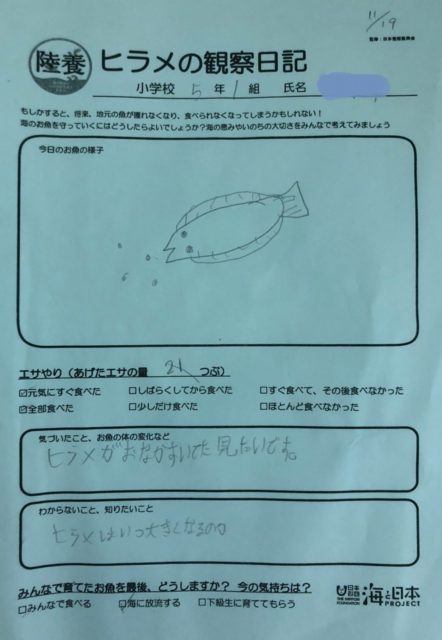 11/19
監修:日本陸養協会
陸養
ヒラメの観察日記
小学校 5年 1組 氏名
もしかすると、将来、地元の魚が獲れなくなり、食べられなくなってしまうかもしれない!
海のお魚を守っていくにはどうしたらよいでしょうか?海の恵みやいのちの大切さをみんなで考えてみましょう
今日のお魚の様子
エサやり(あげたエサの量 21 つぶ)
☑元気にすぐ食べた □しばらくしてから食べた □すぐ食べて、その後食べなかった
☑全部食べた □少しだけ食べた □ほとんど食べなかった
気づいたこと、お魚の体の変化など
ヒラメがおなかすいてた見たいです。
わからないこと、知りたいこと
ヒラメはいつ大きくなるのか
みんなで育てたお魚を最後、どうしますか? 今の気持ちは?
□みんなで食べる ☑海に放流する □下級生に育ててもらう
日本財団
THE NIPPON
FOUNDATION
海と日本
PROJECT